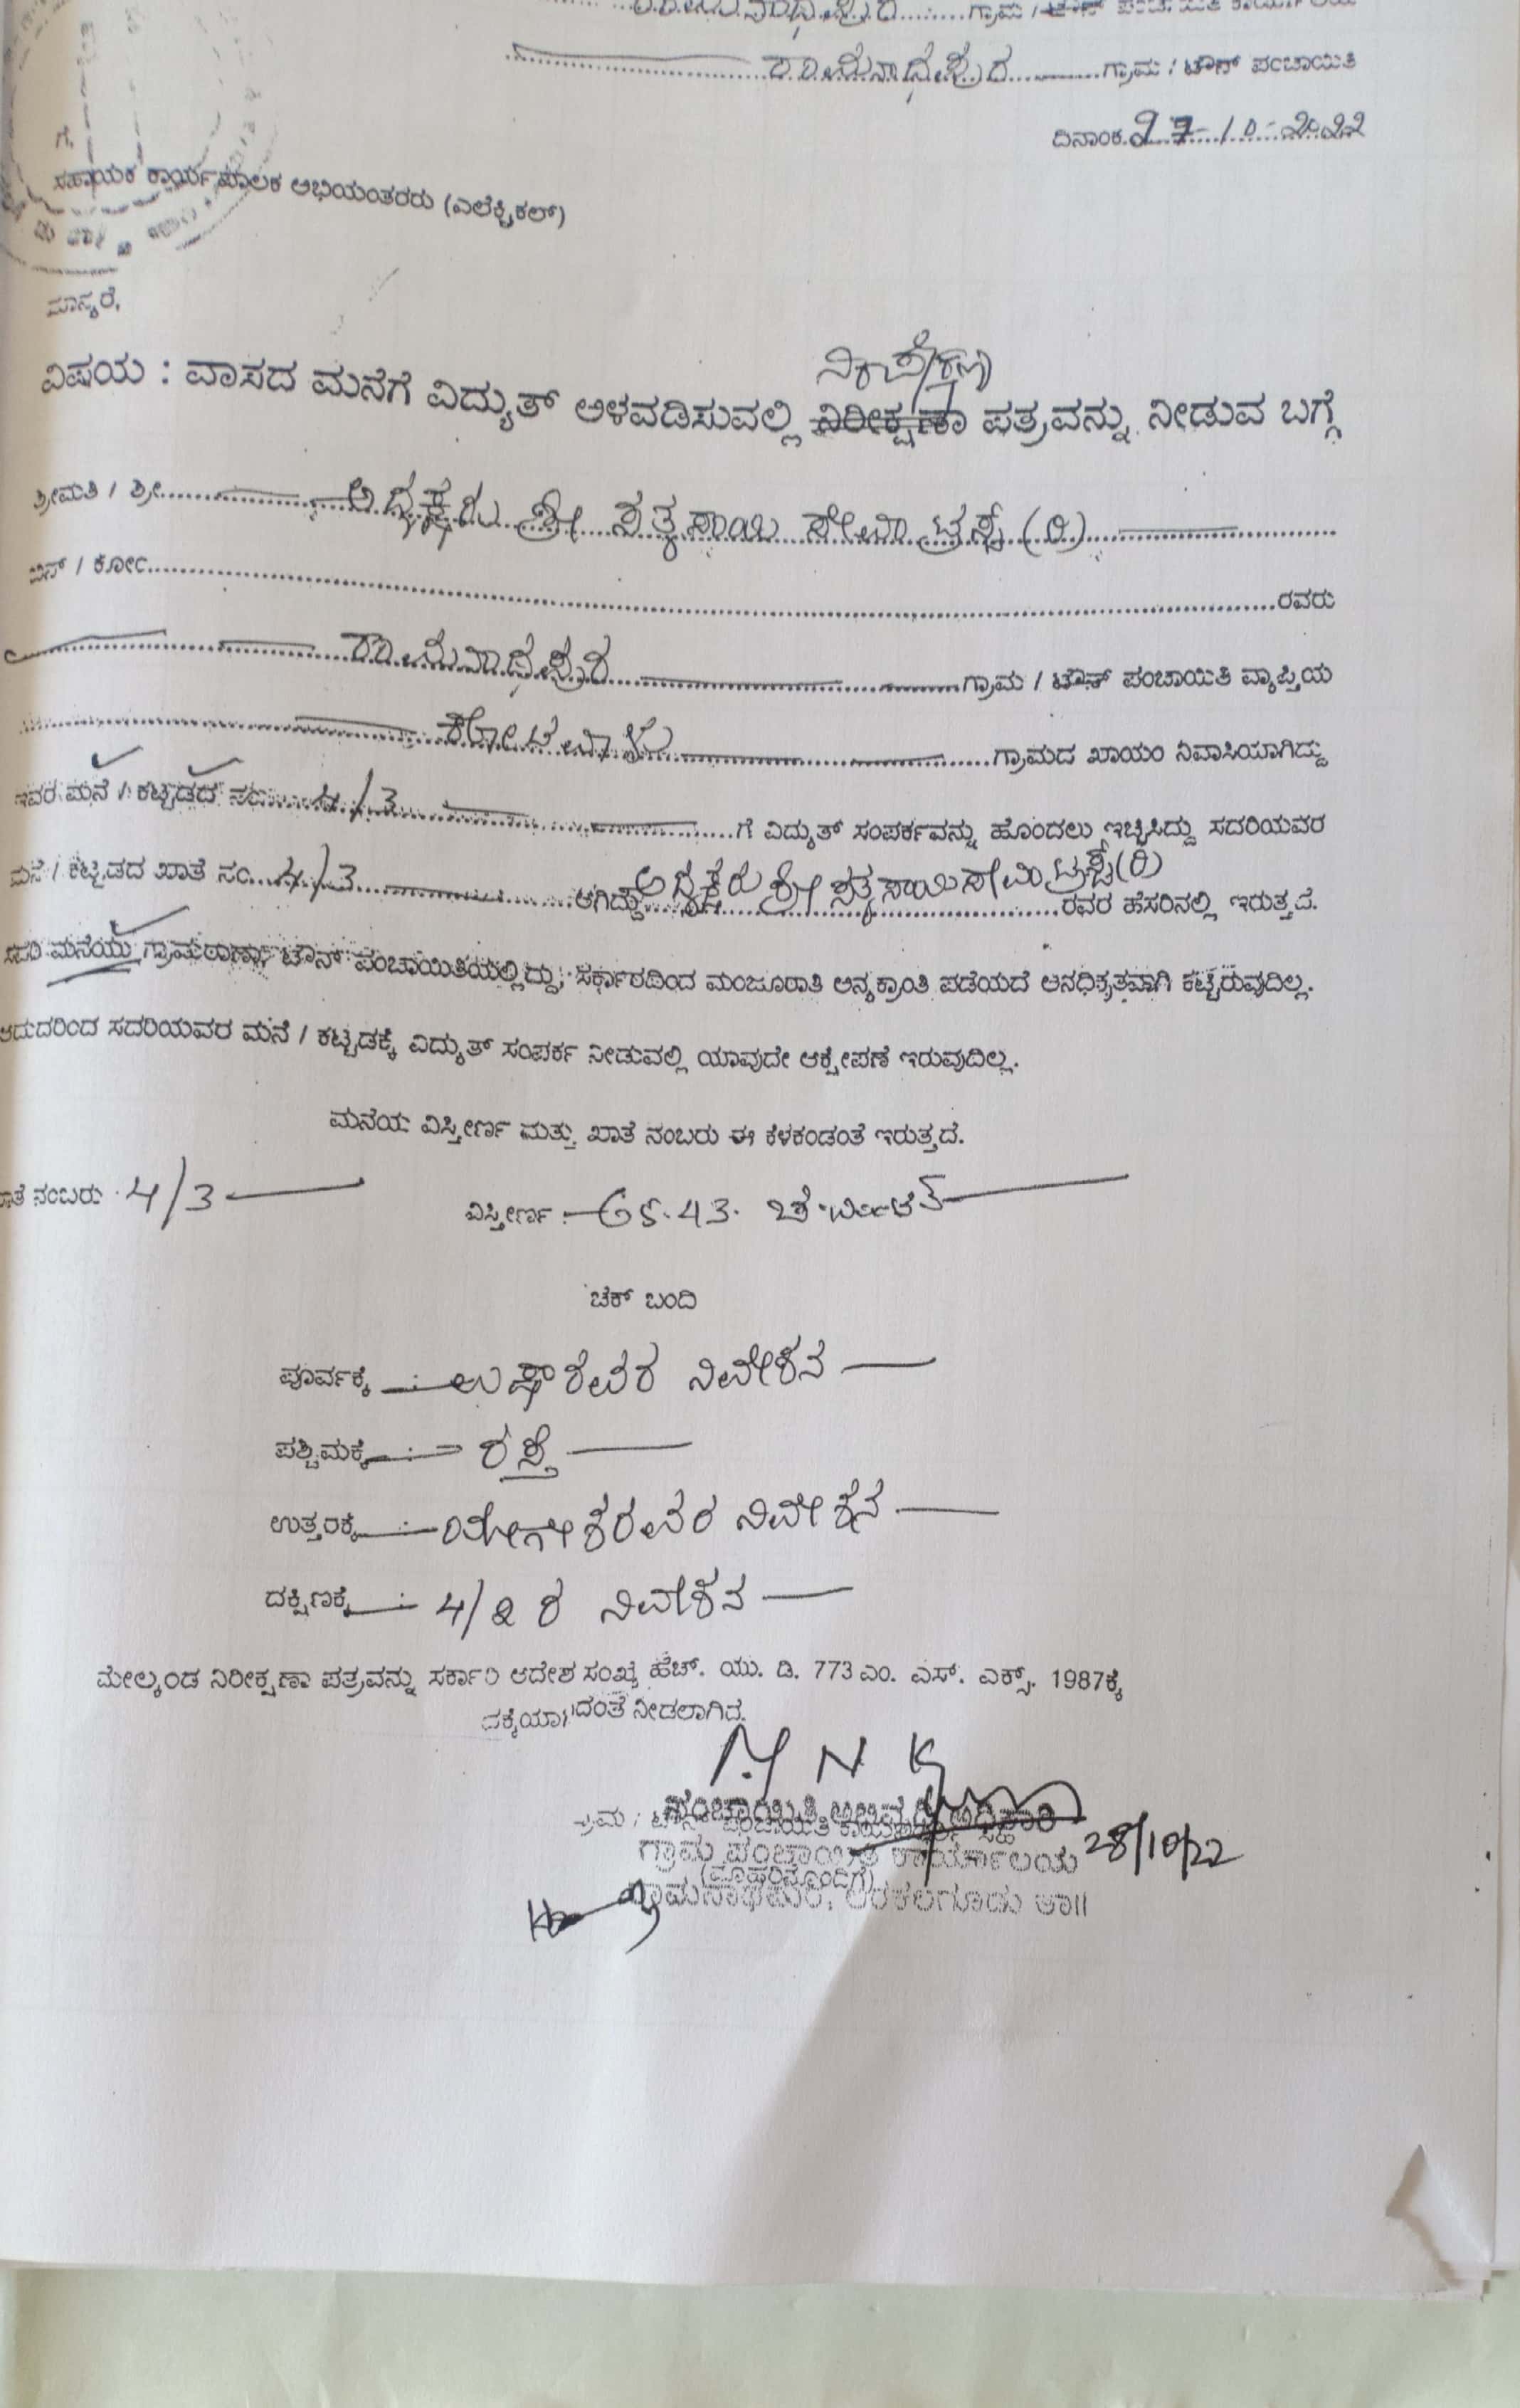 ರಾಮನಾಥಪುರ ಗ್ರಾಮ / ಟೌನ್ ಪಂಚಾಯಿತಿ ಕಾರ್ಯಾಲಯ
ರಾಮನಾಥಪುರ ಗ್ರಾಮ / ಟೌನ್ ಪಂಚಾಯಿತಿ
ದಿನಾಂಕ. 27-10-2022
ಗೆ,
ಸಹಾಯಕ ಕಾರ್ಯಪಾಲಕ ಅಭಿಯಂತರರು (ಎಲೆಕ್ಟ್ರಿಕಲ್)
ಮಾನ್ಯರೆ,
ನಿರಪೇಕ್ಷಣಾ
ವಿಷಯ : ವಾಸದ ಮನೆಗೆ ವಿದ್ಯುತ್ ಅಳವಡಿಸುವಲ್ಲಿ ನಿರೀಕ್ಷಣಾ ಪತ್ರವನ್ನು ನೀಡುವ ಬಗ್ಗೆ
ಶ್ರೀಮತಿ / ಶ್ರೀ ಅಧ್ಯಕ್ಷರು ಶ್ರೀ ಸತ್ಯಸಾಯಿ ಸೇವಾ ಟ್ರಸ್ಟ್ (ರಿ)
ಬಿನ್ / ಕೋಂ ರವರು
ರಾಮನಾಥಪುರ ಗ್ರಾಮ / ಟೌನ್ ಪಂಚಾಯಿತಿ ವ್ಯಾಪ್ತಿಯ
ಕೋಟವಾಳು ಗ್ರಾಮದ ಖಾಯಂ ನಿವಾಸಿಯಾಗಿದ್ದು
ಇವರ ಮನೆ / ಕಟ್ಟಡದ ಸಂ. 4/3 ಗೆ ವಿದ್ಯುತ್ ಸಂಪರ್ಕವನ್ನು ಹೊಂದಲು ಇಚ್ಛಿಸಿದ್ದು ಸದರಿಯವರ
ಮನೆ / ಕಟ್ಟಡದ ಖಾತೆ ಸಂ. 4/3 ಆಗಿದ್ದು ಅಧ್ಯಕ್ಷರು ಶ್ರೀ ಸತ್ಯಸಾಯಿ ಸೇವಾ ಟ್ರಸ್ಟ್ (ರಿ) ರವರ ಹೆಸರಿನಲ್ಲಿ ಇರುತ್ತದೆ.
ಸದರಿ ಮನೆಯು ಗ್ರಾಮಠಾಣಾ, ಟೌನ್ ಪಂಚಾಯಿತಿಯಲ್ಲಿದ್ದು, ಸರ್ಕಾರದಿಂದ ಮಂಜೂರಾತಿ ಅನ್ಯಕ್ರಾಂತಿ ಪಡೆಯದೆ ಅನಧಿಕೃತವಾಗಿ ಕಟ್ಟಿರುವುದಿಲ್ಲ.
ಆದುದರಿಂದ ಸದರಿಯವರ ಮನೆ / ಕಟ್ಟಡಕ್ಕೆ ವಿದ್ಯುತ್ ಸಂಪರ್ಕ ನೀಡುವಲ್ಲಿ ಯಾವುದೇ ಆಕ್ಷೇಪಣೆ ಇರುವುದಿಲ್ಲ.
ಮನೆಯ ವಿಸ್ತೀರ್ಣ ಮತ್ತು ಖಾತೆ ನಂಬರು ಈ ಕೆಳಕಂಡಂತೆ ಇರುತ್ತದೆ.
ಖಾತೆ ನಂಬರು 4/3 ವಿಸ್ತೀರ್ಣ :- 65.43. ಚ.ಮೀಟರ್
ಚೆಕ್ ಬಂದಿ
ಪೂರ್ವಕ್ಕೆ : ಉಷಾರವರ ನಿವೇಶನ
ಪಶ್ಚಿಮಕ್ಕೆ : ರಸ್ತೆ
ಉತ್ತರಕ್ಕೆ : ಯೋಗೇಶರವರ ನಿವೇಶನ
ದಕ್ಷಿಣಕ್ಕೆ : 4/2 ರ ನಿವೇಶನ
ಮೇಲ್ಕಂಡ ನಿರೀಕ್ಷಣಾ ಪತ್ರವನ್ನು ಸರ್ಕಾರಿ ಆದೇಶ ಸಂಖ್ಯೆ ಹೆಚ್. ಯು. ಡಿ. 773 ಎಂ. ಎಸ್. ಎಕ್ಸ್. 1987ಕ್ಕೆ
ದಂತೆ ನೀಡಲಾಗಿದೆ.
M N K
ಪಂಚಾಯಿತಿ ಅಭಿವೃದ್ಧಿ ಅಧಿಕಾರಿ
ಗ್ರಾಮ ಪಂಚಾಯಿತಿ ಕಾರ್ಯಾಲಯ 28/10/22
(ಮೊಹರಿನೊಂದಿಗೆ)
ರಾಮನಾಥಪುರ, ಅರಕಲಗೂಡು ತಾ||